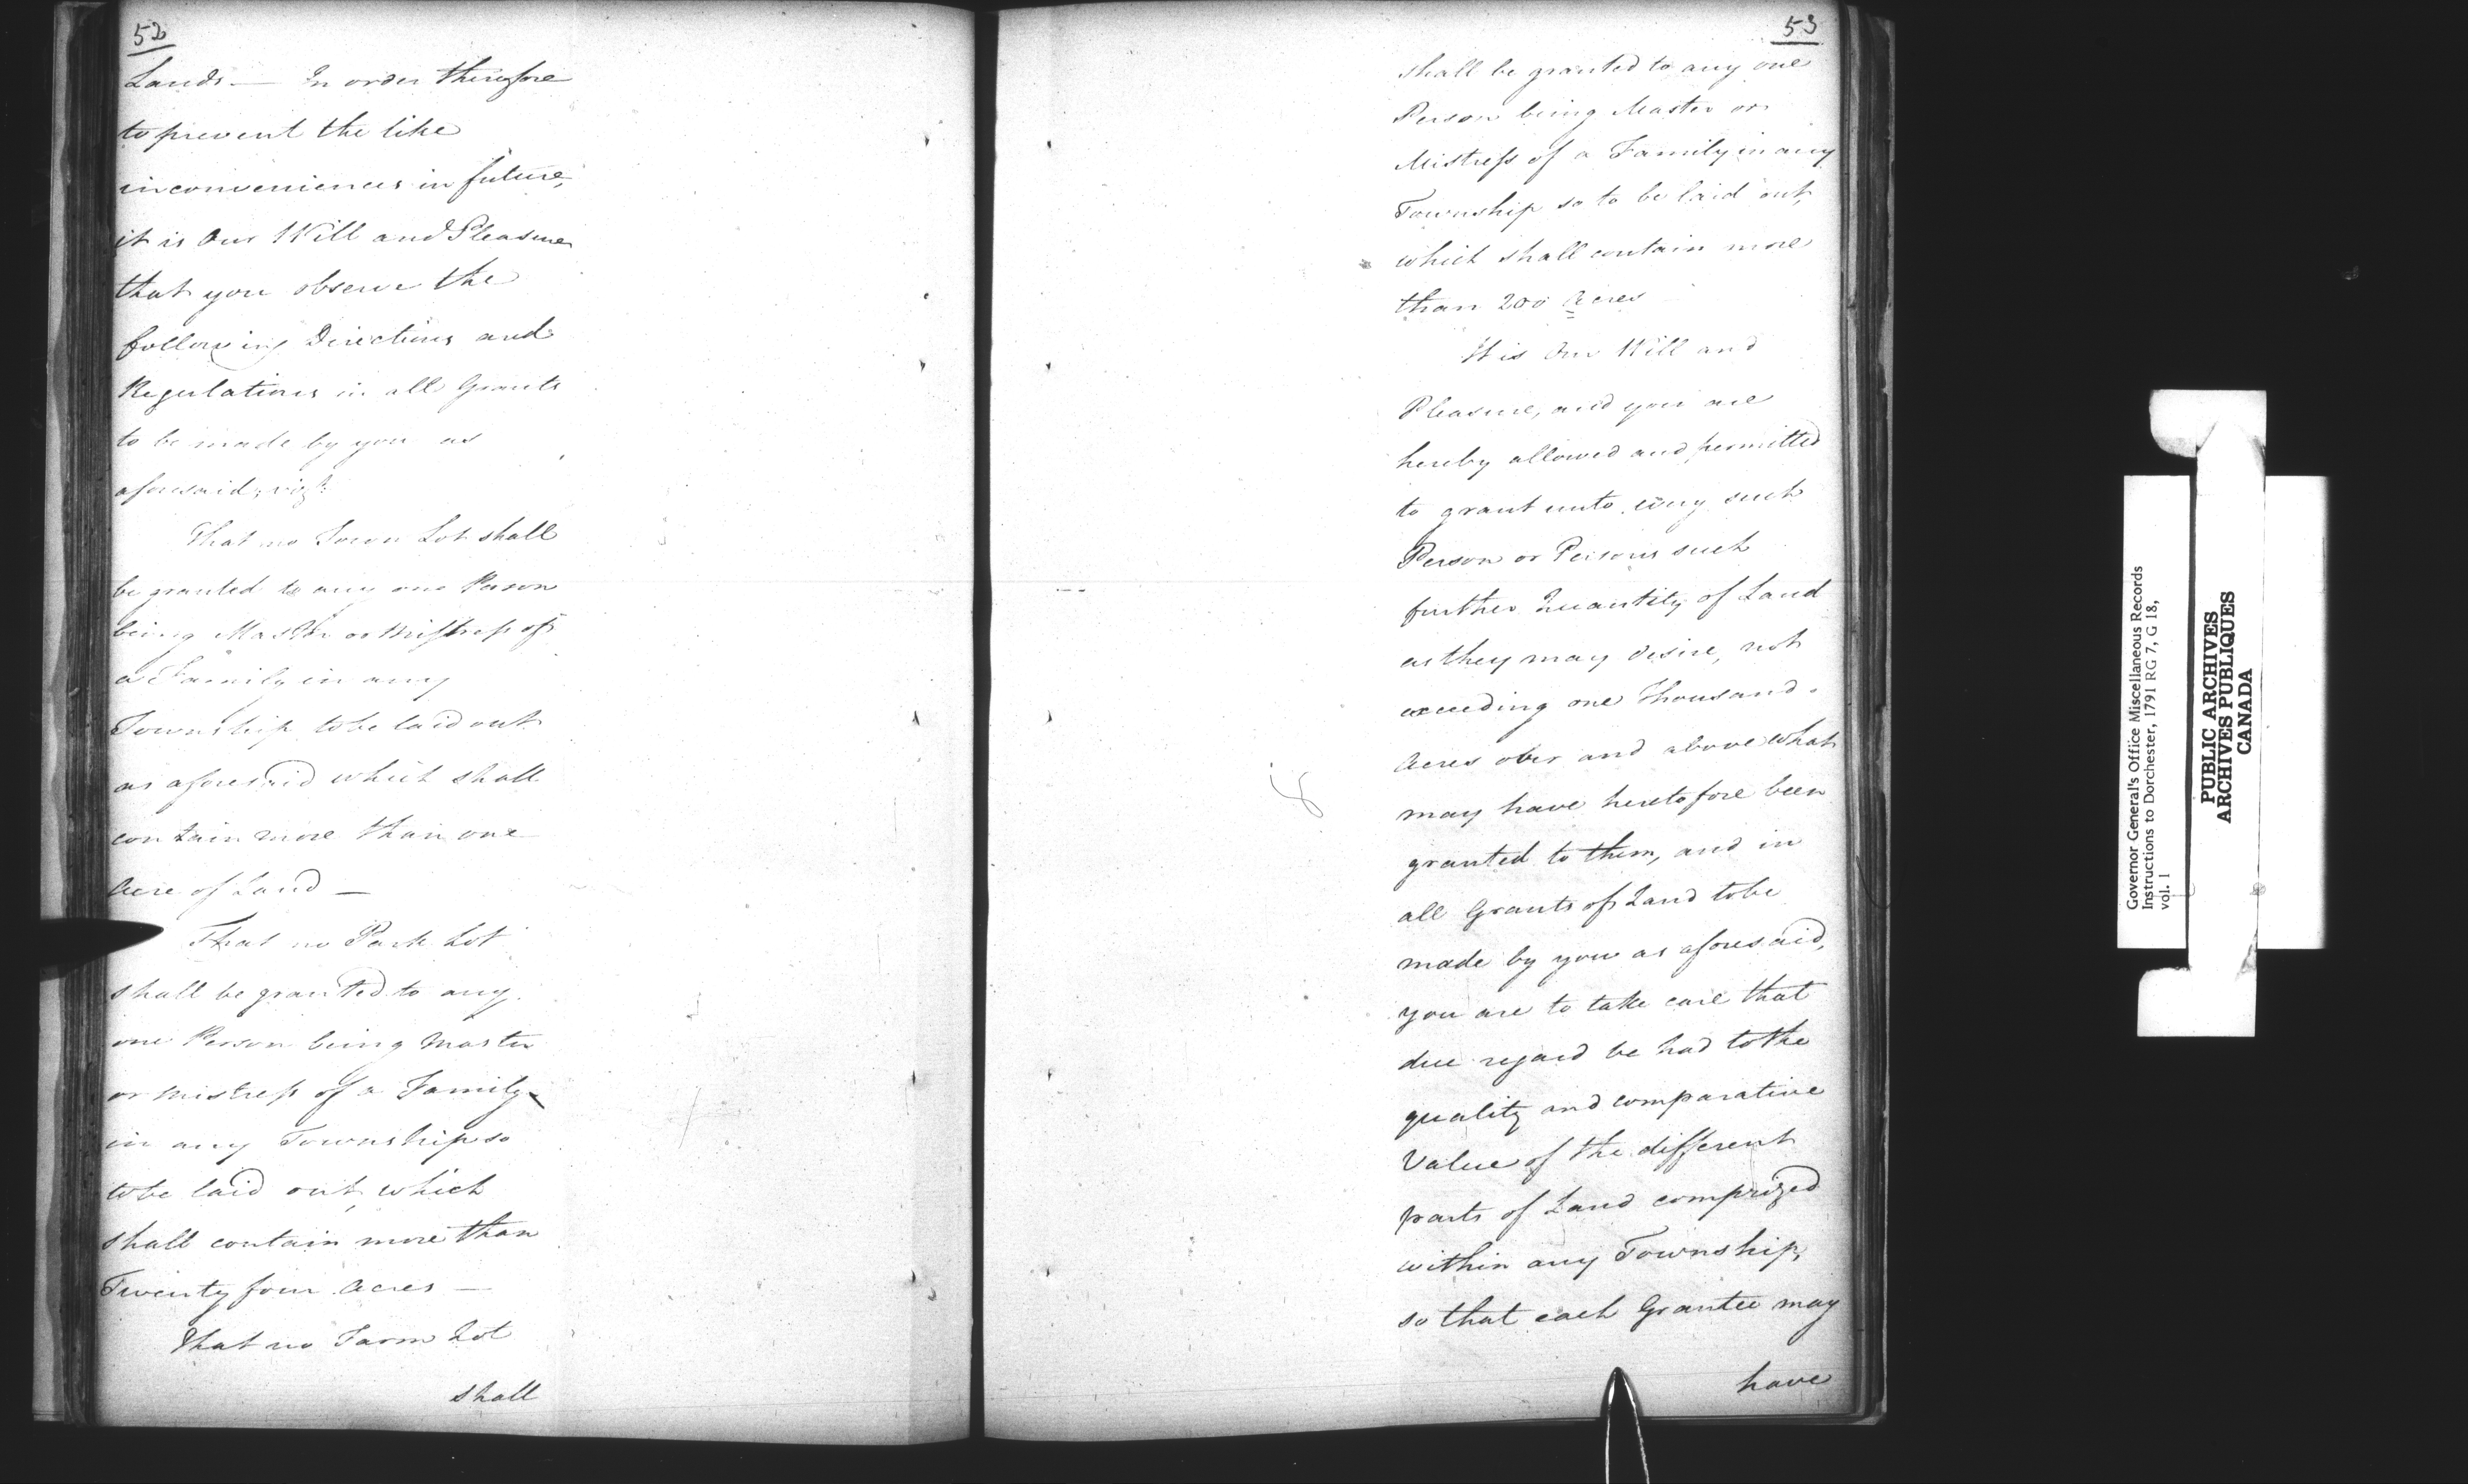 52
Lands — In order therefore
to prevent the like
inconveniences in future,
it is Our Will and Pleasure
that you observe the
following Directions and
Regulations in all Grants
to be made by you as
aforesaid; vizt:
That no Town Lot shall
be granted to any one Person
being Master or Mistress of
a Family in any
Township to be laid out
as aforesaid which shall
contain more than one
Acre of Land —
That no Park Lot
shall be granted to any
one Person being Master
or Mistress of a Family
in any Township so
to be laid out, which
shall contain more than
Twenty four Acres —
That no Farm Lot
shall
53
shall be granted to any one
Person being Master or
Mistress of a Family in any
Township so to be laid out,
which shall contain more
than 200 Acres
It is Our Will and
Pleasure, and you are
hereby allowed and permitted
to grant unto every such
Person or Persons such
further Quantity of Land
as they may desire, not
exceeding one Thousand
Acres over and above what
may have heretofore been
granted to them, and in
all Grants of Land to be
made by you as aforesaid,
you are to take care that
due regard be had to the
quality and comparative
Value of the different
parts of Land comprized
within any Township,
so that each Grantee may
have
Governor General's Office Miscellaneous Records
Instructions to Dorchester, 1791 RG 7, G 18,
vol. 1
PUBLIC ARCHIVES
ARCHIVES PUBLIQUES
CANADA